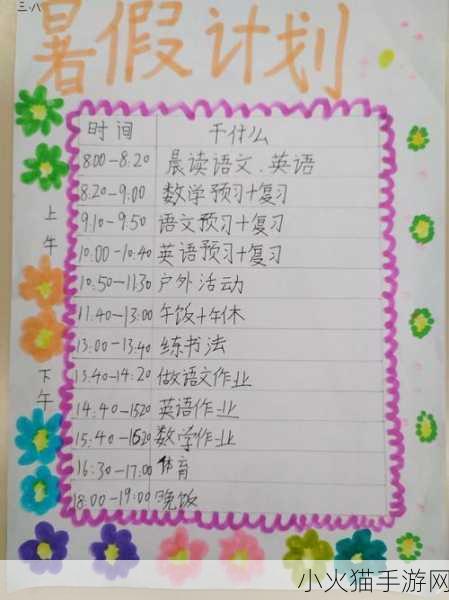 三.八
暑假计划
时间 干什么
8:00-8:20 晨读语文、英语
8:20-9:00 数学预习+复习
9:10-9:50 语文预习+复习
10:00-10:40 英语预习+复习
10:50-11:30 户外活动
11:40-13:00 午饭+午休
13:00-13:40 练书法
13:40-14:20 做语文作业
14:40-15:20 英语作业
15:40-16:20 数学作业
16:30-17:00 体育
18:00-19:00 晚饭
上午
下午
小火猫手游网